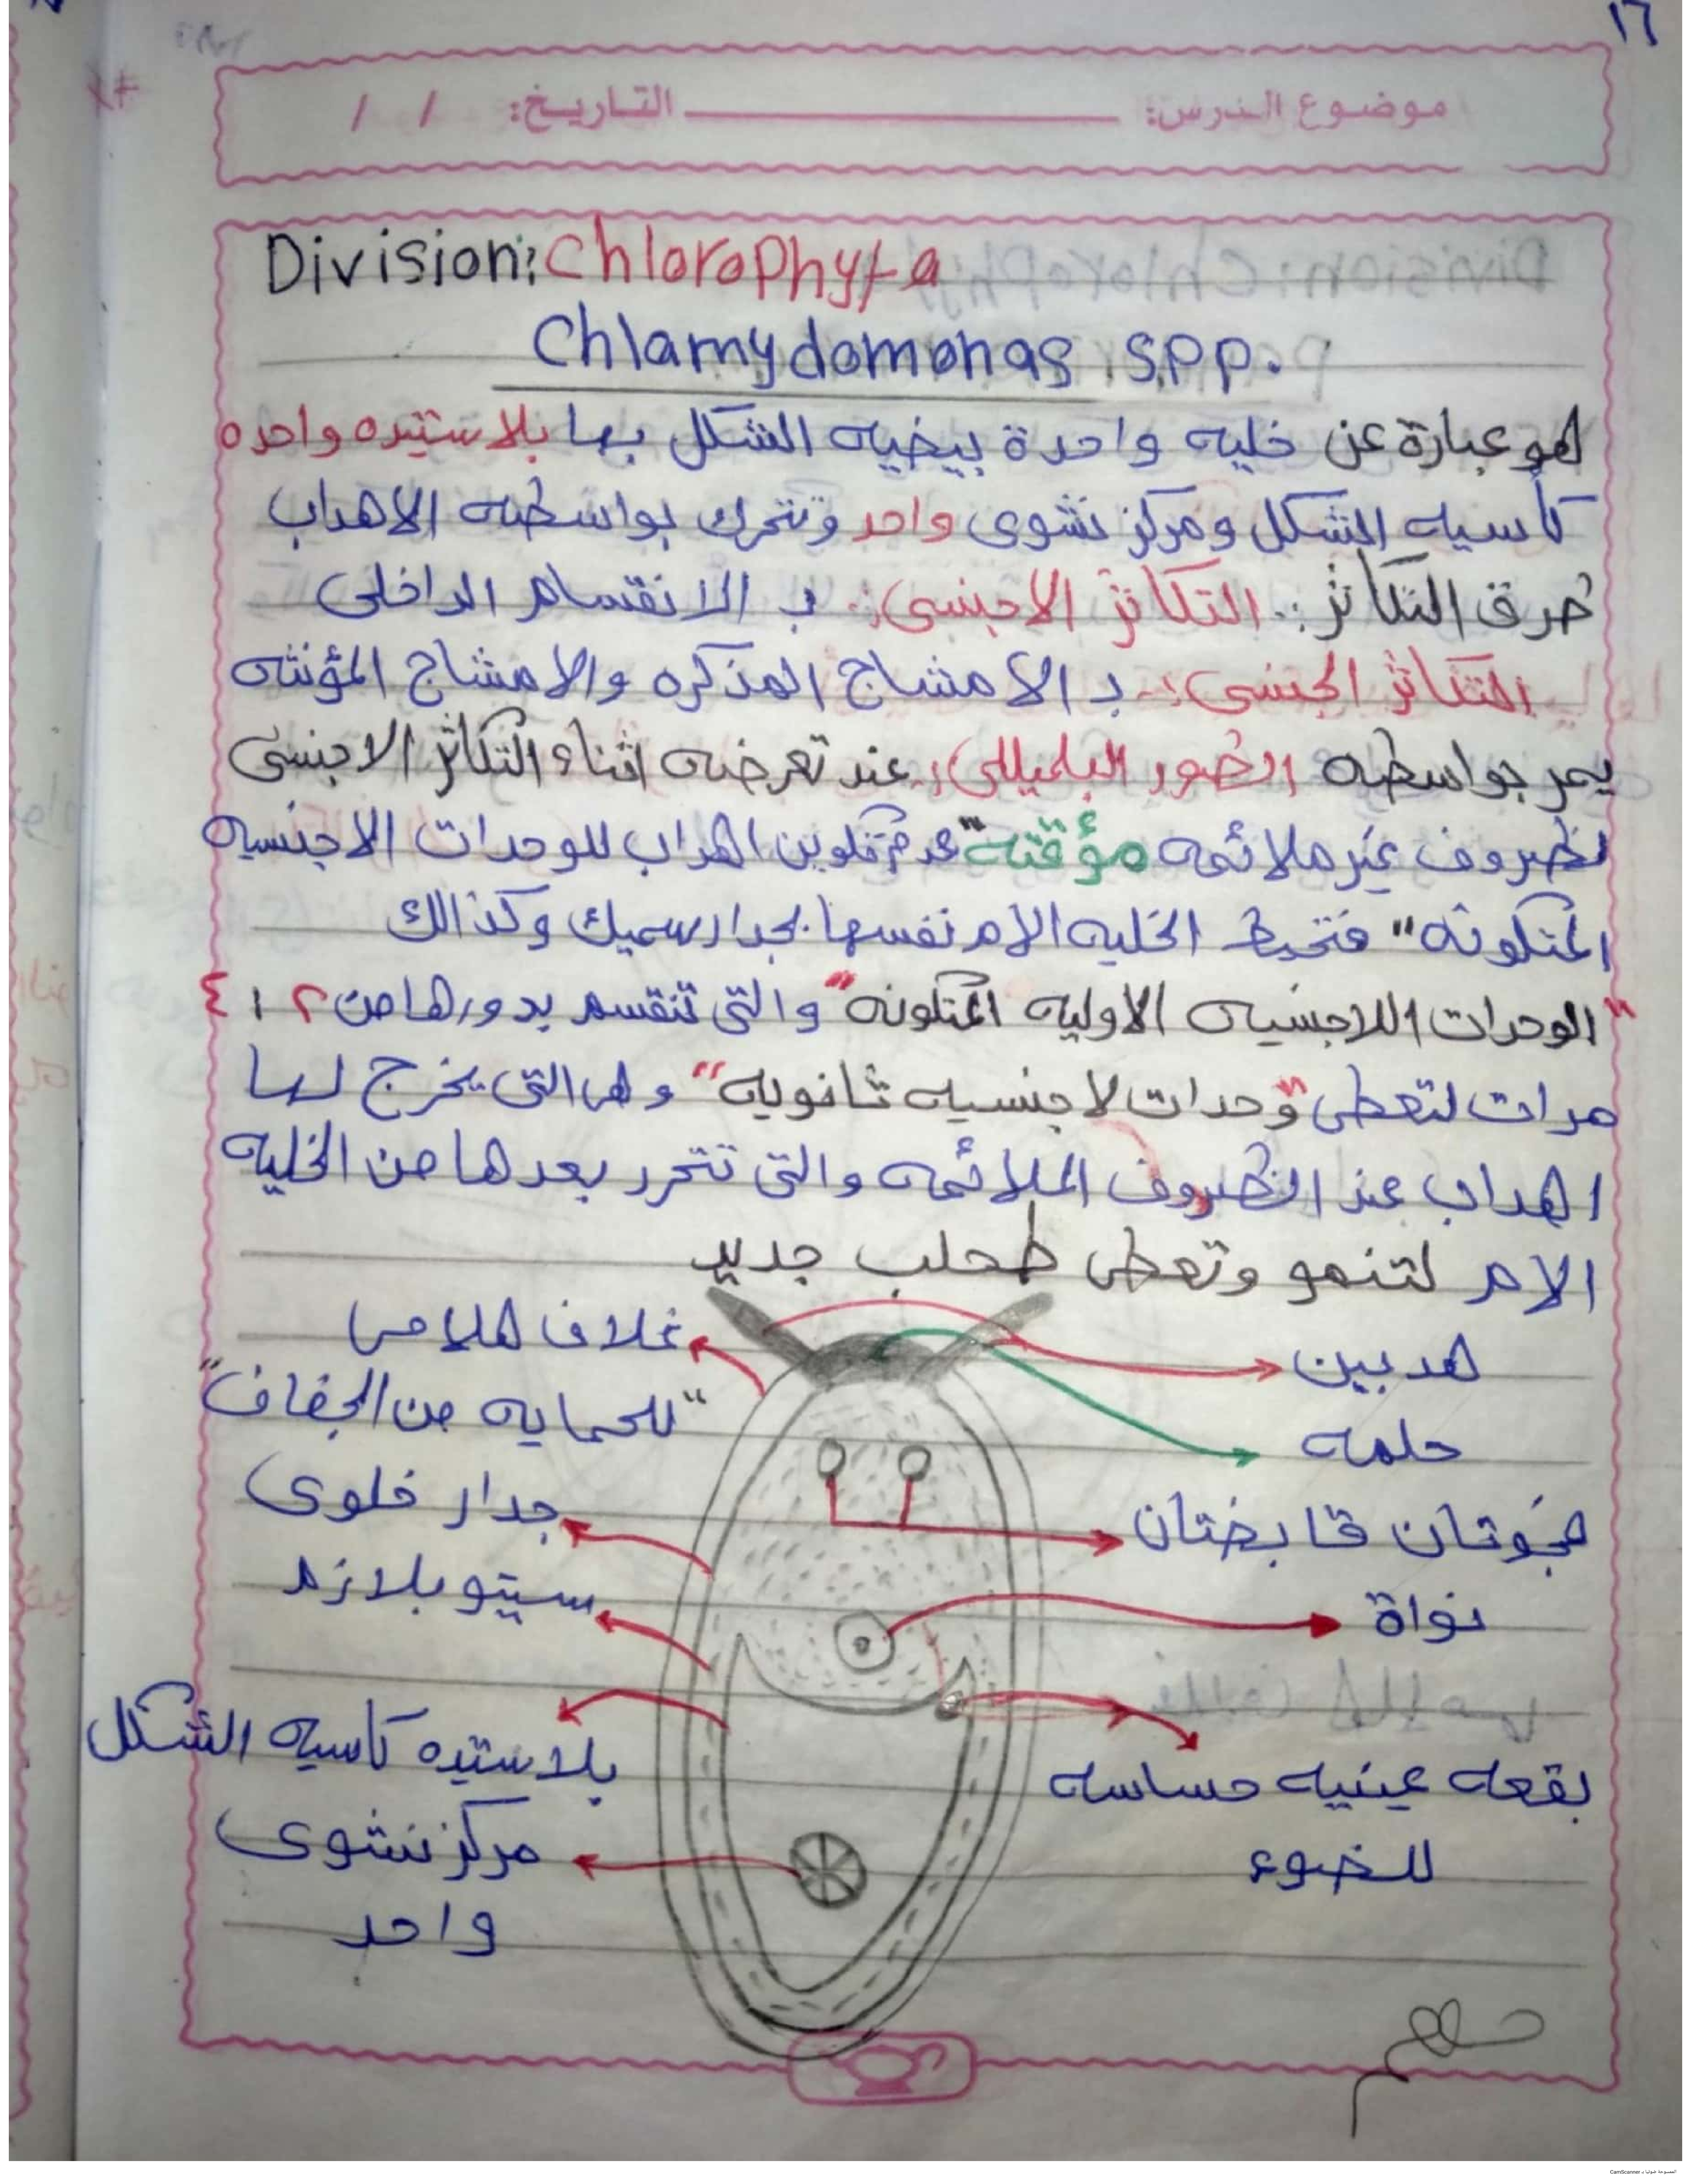 ١٦
موضوع الدرس: التاريخ: / /
Division: Chlorophyta
Chlamydomonas spp.
هو عبارة عن خليه واحدة بيضيه الشكل بها بلاستيده واحده
كأسيه الشكل ومركز نشوى واحد وتتحرك بواسطه الاهداب
طرق التكاثر:. التكاثر الاجنسى:. ب الانقسام الداخلى
التكاثر الجنسى:. ب الامشاج المذكره والامشاج المؤنثه
يمر بواسطه الطور البلميللى:. عند تعرضه اثناء التكاثر الاجنسى
لظروف غير ملائمه مؤقتة "عدم تكوين اهداب للوحدات الاجنسيه
المتكونه" فتحيط الخليه الام نفسها بجدار سميك وكذالك
"الوحدات اللاجنسيه الاوليه المتكونه" والتى تنقسم بدورها من ٢ : ٤
مرات لتعطى "وحدات لاجنسيه ثانويه" وهى التى يخرج لها
اهداب عند الظروف الملائمه والتى تتحرر بعدها من الخليه
الام لتنمو وتعطى طحلب جديد
هدبين
غلاف هلامى
"للحمايه من الجفاف"
حلمه
جدار خلوى
فجوتان قابضتان
سيتوبلازم
نواة
بلاستيده كاسيه الشكل
بقعه عينيه حساسه
للضوء
مركز نشوى
واحد
الممسوحة ضوئيا بـ CamScanner